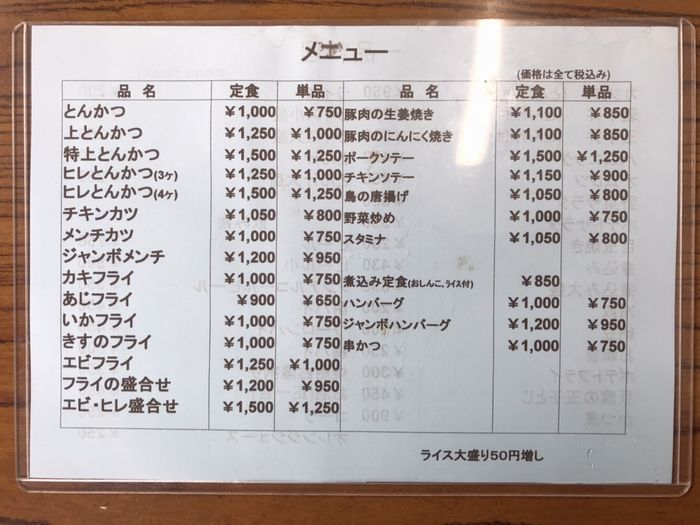 メニュー
(価格は全て税込み)
品 名 定食 単品 品 名 定食 単品
とんかつ ¥1,000 ¥750 豚肉の生姜焼き ¥1,100 ¥850
上とんかつ ¥1,250 ¥1,000 豚肉のにんにく焼き ¥1,100 ¥850
特上とんかつ ¥1,500 ¥1,250 ポークソテー ¥1,500 ¥1,250
ヒレとんかつ(3ヶ) ¥1,250 ¥1,000 チキンソテー ¥1,150 ¥900
ヒレとんかつ(4ヶ) ¥1,500 ¥1,250 鳥の唐揚げ ¥1,050 ¥800
チキンカツ ¥1,050 ¥800 野菜炒め ¥1,000 ¥750
メンチカツ ¥1,000 ¥750 スタミナ ¥1,050 ¥800
ジャンボメンチ ¥1,200 ¥950
カキフライ ¥1,000 ¥750 煮込み定食(おしんこ、ライス付) ¥850
あじフライ ¥900 ¥650 ハンバーグ ¥1,000 ¥750
いかフライ ¥1,000 ¥750 ジャンボハンバーグ ¥1,200 ¥950
きすのフライ ¥1,000 ¥750 串かつ ¥1,000 ¥750
エビフライ ¥1,250 ¥1,000
フライの盛合せ ¥1,200 ¥950
エビ・ヒレ盛合せ ¥1,500 ¥1,250
ライス大盛り50円増し